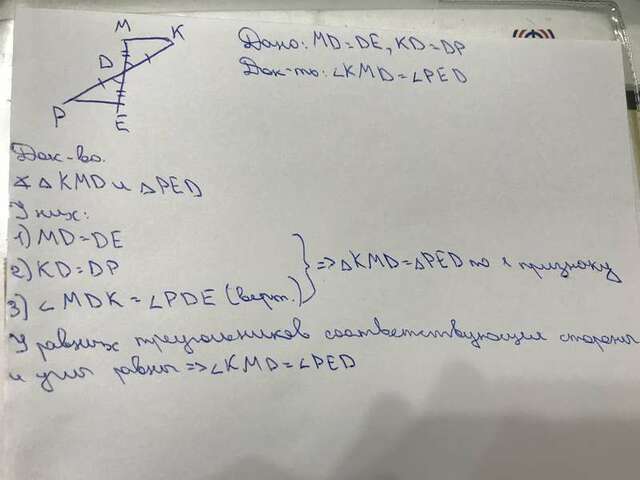 M K
D
P
E
Дано: MD=DE, KD=DP
Док-ть: ∠KMD=∠PED
Док-во.
∢ △KMD и △PED
У них:
1) MD=DE
2) KD=DP
3) ∠MDK=∠PDE (верт.)
=> △KMD=△PED по 1 признаку
У равных треугольников соответствующие стороны
и углы равны => ∠KMD=∠PED